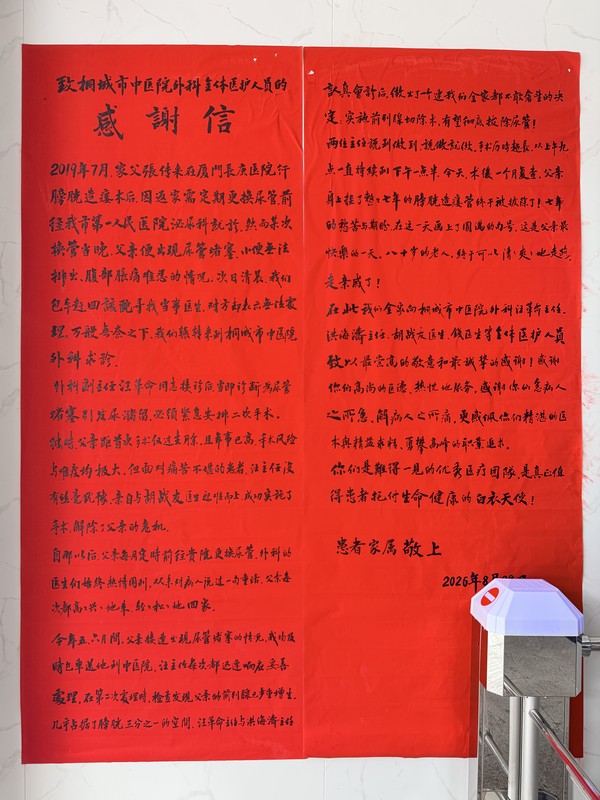 致桐城市中医院外科全体医护人员的
感謝信
2019年7月，家父張传来在厦門長庚医院行
膀胱造瘘术后，因返家需定期更换尿管，前
往我市第一人民医院泌尿科就診。然而某次
换管当晚，父亲便出现尿管堵塞、小便无法
排出、腹部胀痛难忍的情况。次日清晨，我们
包车赶回該院寻找当事医生，对方却表示无法處
理。万般无奈之下，我们辗转来到桐城市中医院
外科求診。
外科副主任汪革命同志接診后当即诊断为尿管
堵塞引发尿潴留，必须紧急安排二次手术。
彼時，父亲距首次手术仅过去月餘，且年事已高，手术风险
与难度均极大。但面对痛苦不堪的患者，汪主任没
有丝毫犹豫，亲自与胡战友医生迎难而上，成功实施了
手术，解除了父亲的危机。
自那以后，父亲每月定時前往貴院更换尿管，外科的
医生们始终热情周到，从未对病人说过一句重话。父亲每
次都高高兴兴地来，轻轻松松地回家。
今年五、六月間，父亲接連出现尿管堵塞的情况，我均及
時包車送他到中医院，汪主任每次都迅速响应、妥善
處理。在第二次處理時，检查发现父亲的前列腺已严重增生，
几乎占据了膀胱三分之一的空間。汪革命主任与洪海濟主任
認真會診后，做出了一个連我们全家都不敢奢望的决
定，实施前列腺切除术，有望彻底拔除尿管！
两位主任说到做到，说做就做，手术历時超長，从上午九
点一直持续到下午一点半。今天，术后一个月复查，父亲
身上挂了整整七年的膀胱造瘘管终于被拔除了！七年
的愁苦与期盼，在这一天画上了圆满的句号，这是父亲最
快樂的一天，八十岁的老人，终于可以清清爽爽地走路、
走亲戚了！
在此，我们全家向桐城市中医院外科汪革命主任、
洪海濟主任、胡战友医生、钱医生等全体医护人员
致以最崇高的敬意和最诚挚的感謝！感謝
你们高尚的医德、热忱地服务，感謝你们急病人
之所急、解病人之所痛，更感佩你们精湛的医
术与精益求精、勇攀高峰的职業追求。
你们是難得一見的优秀医疗团隊，是真正值
得患者托付生命健康的白衣天使！
患者家属敬上
2026年8月